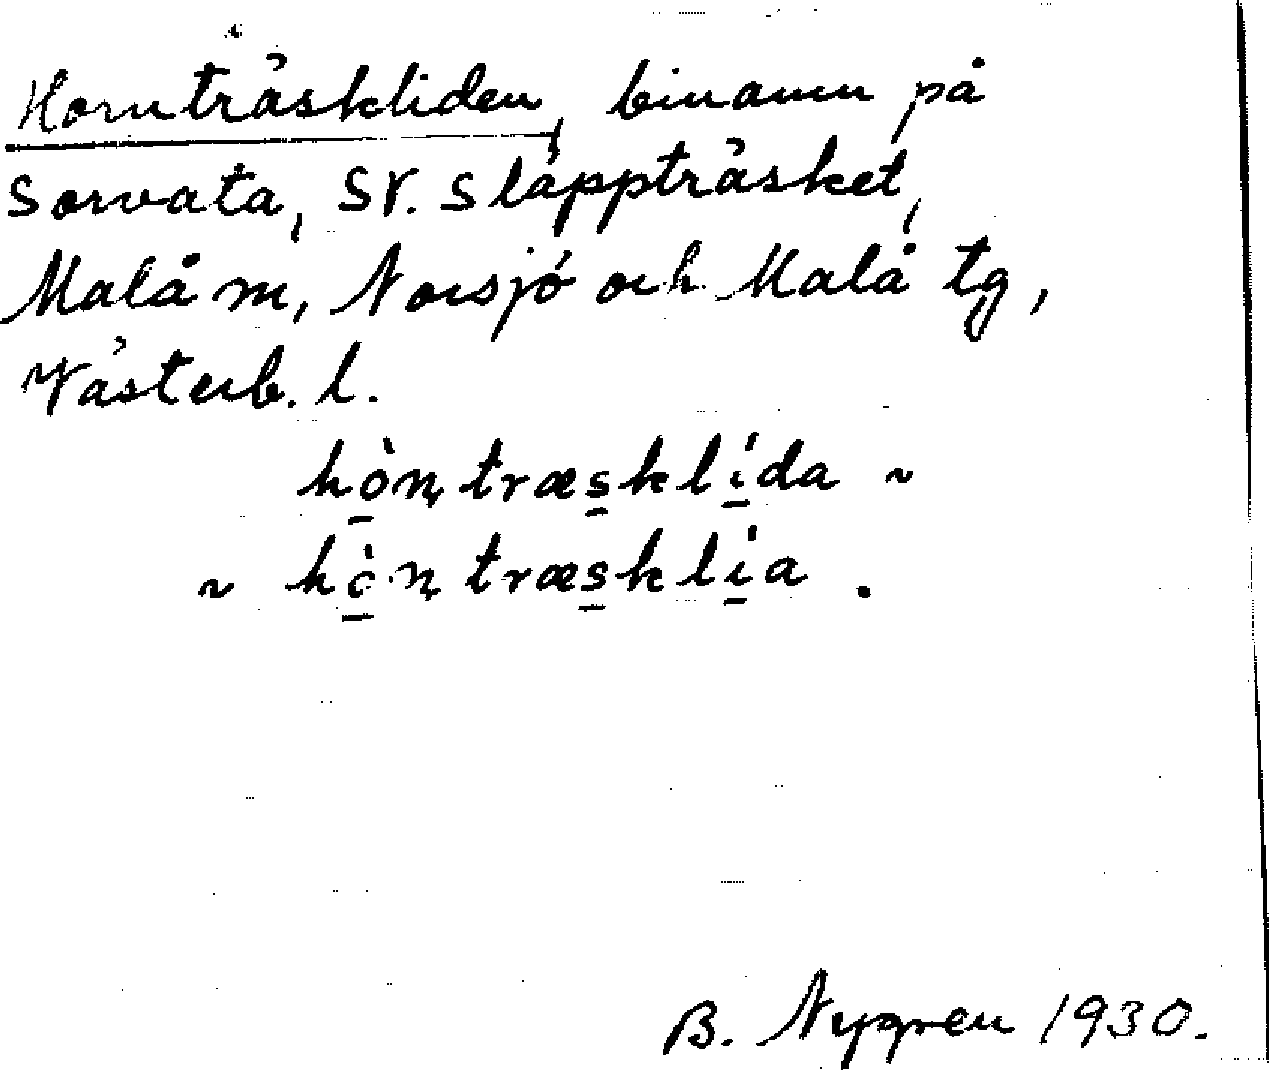 Hornträskliden, binamn på
Sorvata, SV. Släppträsket,
Malå m, Norsjö och Malå tg,
Västerb. l.
hò̱ṇtræs̱klí̱da ~
~ hò̱ṇtræs̱klí̱a .
B. Nygren 1930.